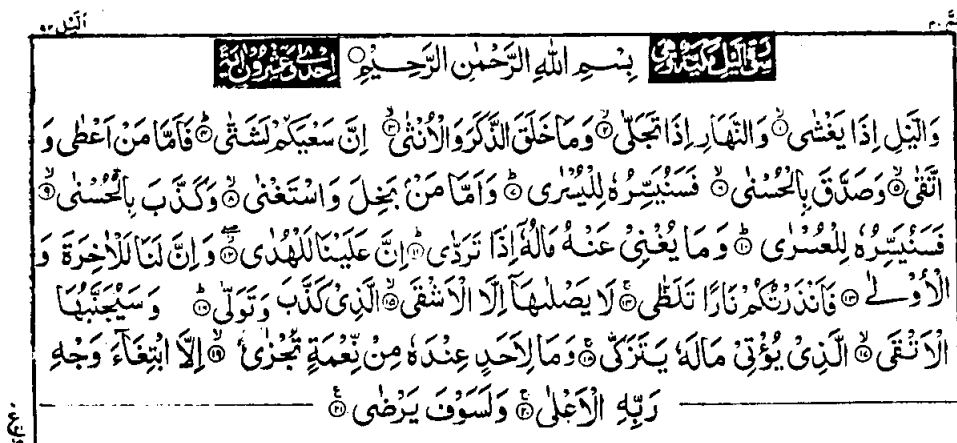 الیل ۹۲
عم ۳۰
سورۃ الیل مکیۃ وھی بِسْمِ اللّٰهِ الرَّحْمٰنِ الرَّحِيْمِ اِحْدٰی وَّعِشْرُوْنَ اٰيَةً
وَالَّيْلِ اِذَا يَغْشٰى ۙ‏﴿۱﴾ وَالنَّهَارِ اِذَا تَجَلّٰى ۙ‏﴿۲﴾ وَمَا خَلَقَ الذَّكَرَ وَالْاُنْثٰٓى ۙ‏﴿۳﴾ اِنَّ سَعْيَكُمْ لَشَتّٰى ؕ‏﴿۴﴾ فَاَمَّا مَنْ اَعْطٰى وَ
اتَّقٰى ۙ‏﴿۵﴾ وَصَدَّقَ بِالْحُسْنٰى ۙ‏﴿۶﴾ فَسَنُيَسِّرُهٗ لِلْيُسْرٰى ؕ‏﴿۷﴾ وَاَمَّا مَنْۢ بَخِلَ وَاسْتَغْنٰى ۙ‏﴿۸﴾ وَكَذَّبَ بِالْحُسْنٰى ۙ‏﴿۹﴾
فَسَنُيَسِّرُهٗ لِلْعُسْرٰى ؕ‏﴿۱۰﴾ وَمَا يُغْنِىْ عَنْهُ مَالُهٗۤ اِذَا تَرَدّٰى ؕ‏﴿۱۱﴾ اِنَّ عَلَيْنَا لَلْهُدٰى ۖ‏﴿۱۲﴾ وَاِنَّ لَنَا لَلْاٰخِرَةَ وَ
الْاُوْلٰى ‏﴿۱۳﴾ فَاَنْذَرْتُكُمْ نَارًا تَلَظّٰى ۚ‏﴿۱۴﴾ لَا يَصْلٰٮهَاۤ اِلَّا الْاَشْقَى ۙ‏﴿۱۵﴾ الَّذِىْ كَذَّبَ وَتَوَلّٰى ؕ‏﴿۱۶﴾ وَسَيُجَنَّبُهَا
الْاَتْقَى ۙ‏﴿۱۷﴾ الَّذِىْ يُؤْتِىْ مَالَهٗ يَتَزَكّٰى ۚ‏﴿۱۸﴾ وَمَا لِاَحَدٍ عِنْدَهٗ مِنْ نِّعْمَةٍ تُجْزٰٓى ۙ‏﴿۱۹﴾ اِلَّا ابْتِغَآءَ وَجْهِ
رَبِّهِ الْاَعْلٰى ۚ‏﴿۲۰﴾ وَلَسَوْفَ يَرْضٰى ‏﴿۲۱﴾